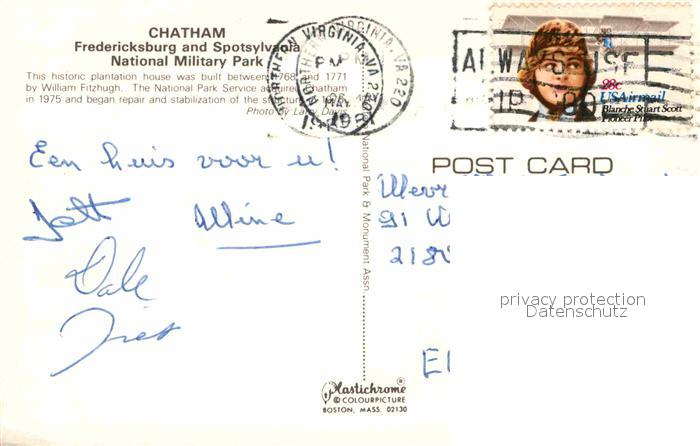 CHATHAM
Fredericksburg and Spotsylvania
National Military Park
This historic plantation house was built between 1768 and 1771
by William Fitzhugh. The National Park Service acquired Chatham
in 1975 and began repair and stabilization of the
Photo by Larry Davis
NORTHERN VIRGINIA, VA 220
PM
1981
ALWAYS USE
ZIP CODE
28c
USAirmail
Blanche Stuart Scott
Pioneer Pilot
POST CARD
National Park & Monument Assn.
Een huis voor u!
Jett Wine
Dale
Piet
Mevr
91
218
El
privacy protection
Datenschutz
Plastichrome®
© COLOURPICTURE
BOSTON, MASS. 02130